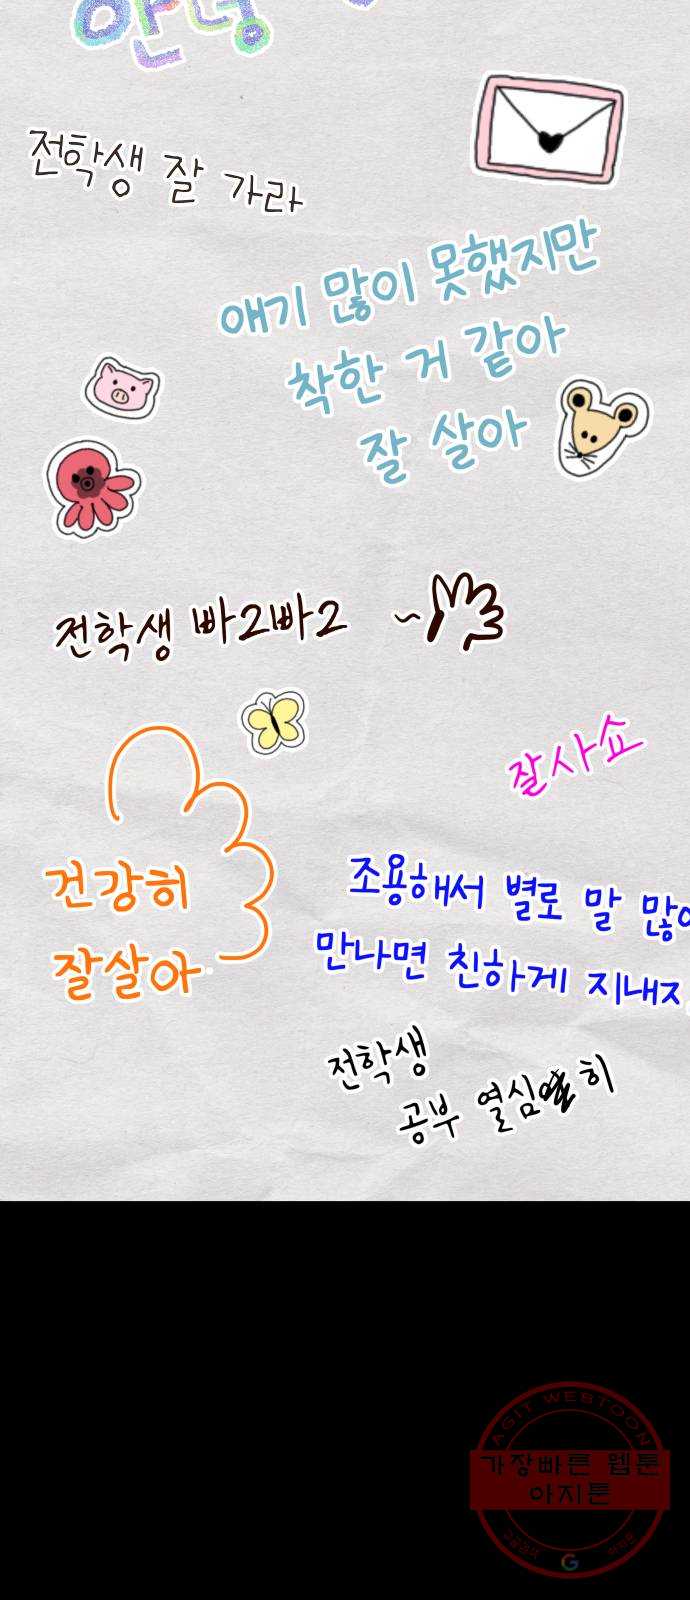 안녕
전학생 잘 가라
얘기 많이 못했지만
착한 거 같아
잘 살아
전학생 빠2빠2 ~
잘사쇼
건강히
잘살아
조용해서 별로 말 많이
만나면 친하게 지내자
전학생
공부 열심히
AGIT WEBTOON
가장빠른 웹툰
아지툰
구글검색 아지툰